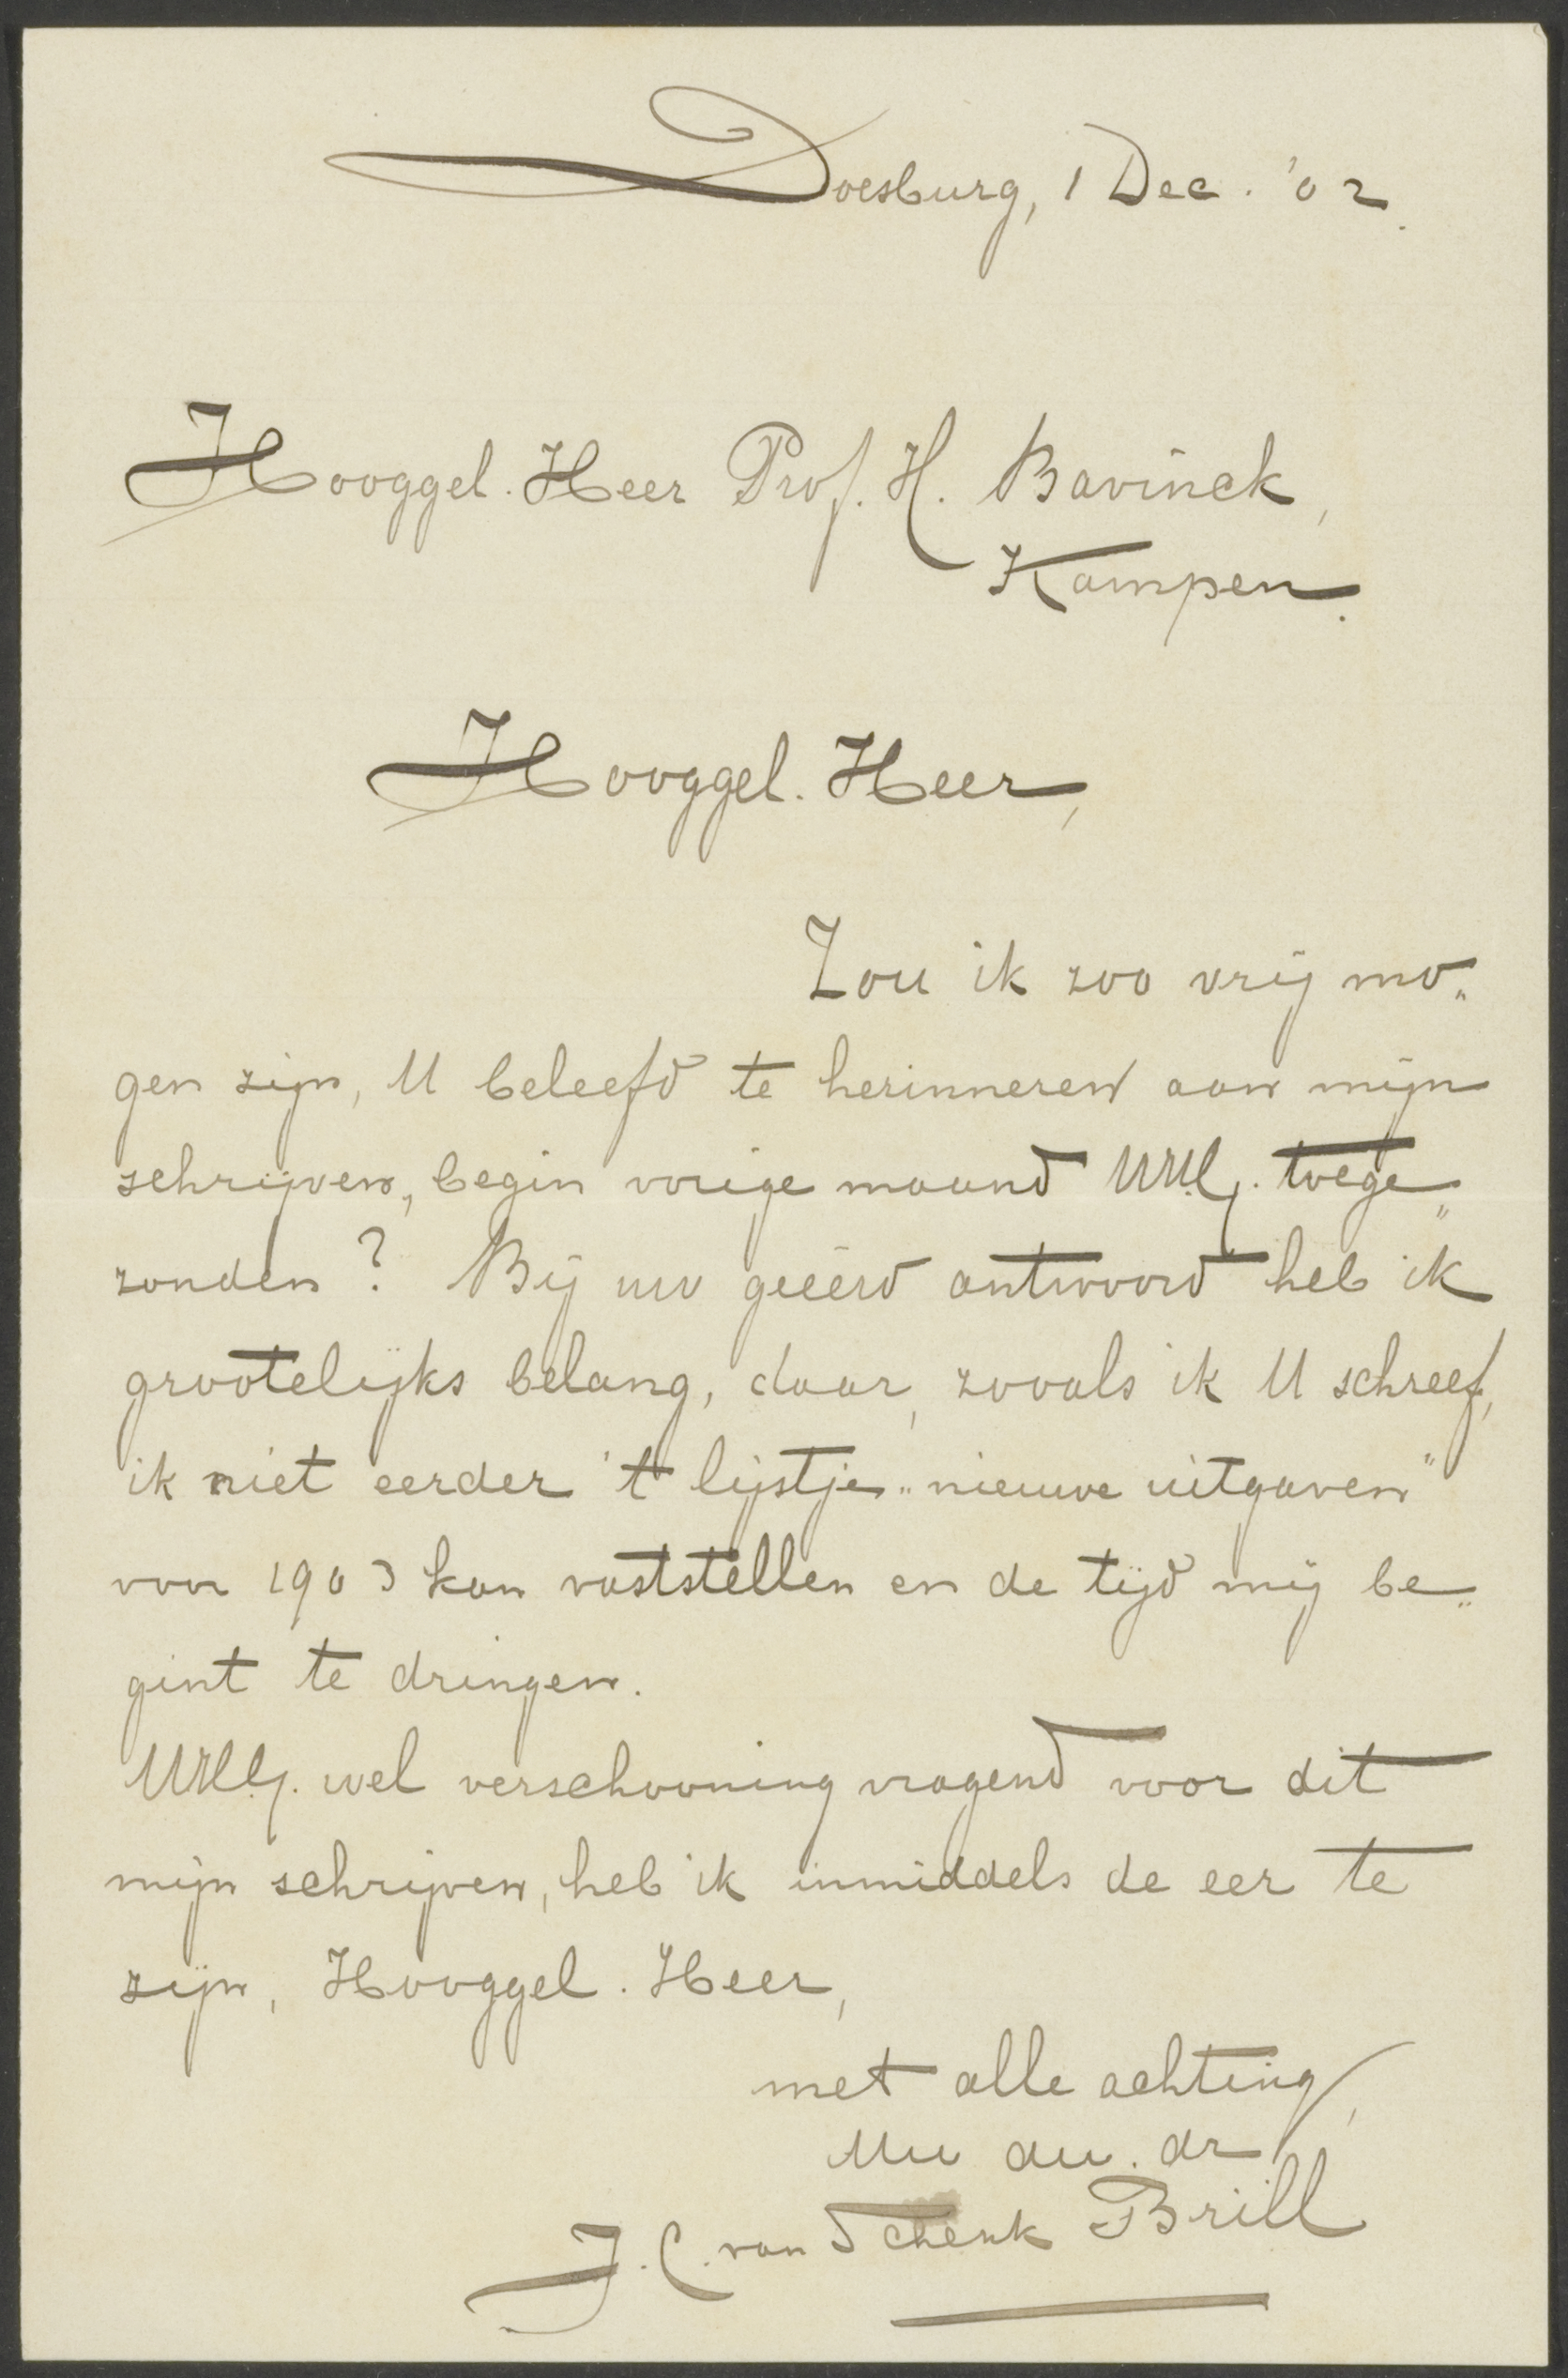 Doesburg, 1 Dec. '02.
Hooggel. Heer Prof. H. Bavinck,
Kampen.
Hooggel. Heer,
Zou ik zoo vrij mo„
gen zijn, U beleefd te herinneren aan mijn
schrijven, begin vorige maand UHlg. toege„
zonden? Bij uw geëerd antwoord heb ik
grootelijks belang, daar, zooals ik U schreef,
ik niet eerder 't lijstje „nieuwe uitgaven"
voor 1903 kan vaststellen en de tijd mij be„
gint te dringen.
UHlg. wel verschooning vragend voor dit
mijn schrijven, heb ik inmiddels de eer te
zijn, Hooggel. Heer,
met alle achting,
Uw dw. dr
J. C. van Schenk Brill